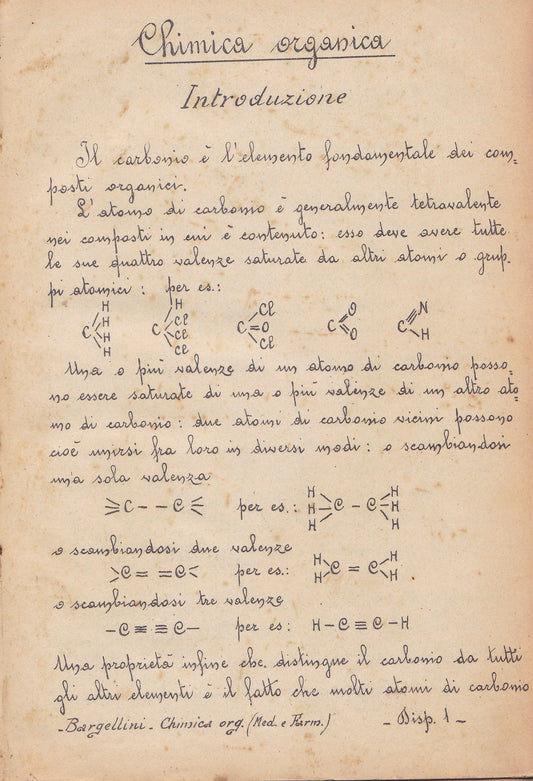 Chimica organica
Introduzione
Il carbonio è l'elemento fondamentale dei com=
posti organici.
L'atomo di carbonio è generalmente tetravalente
nei composti in cui è contenuto: esso deve avere tutte
le sue quattro valenze saturate da altri atomi o grup=
pi atomici: per es.:
C H H H H   C H Cl Cl Cl   C Cl =O Cl   C O O   C≡N H
Una o più valenze di un atomo di carbonio posso=
no essere saturate di una o più valenze di un altro ato=
mo di carbonio: due atomi di carbonio vicini possono
cioè unirsi fra loro in diversi modi: o scambiandosi
una sola valenza
≥C - - C≤ per es.: H H H C - C H H H
o scambiandosi due valenze
>C = = C< per es.: H H >C = C< H H
o scambiandosi tre valenze
-C≡ ≡C- per es: H-C≡C-H
Una proprietà infine che distingue il carbonio da tutti
gli altri elementi è il fatto che molti atomi di carbonio
-Bargellini- Chimica org. (Med. e Farm.) - Disp. 1 -